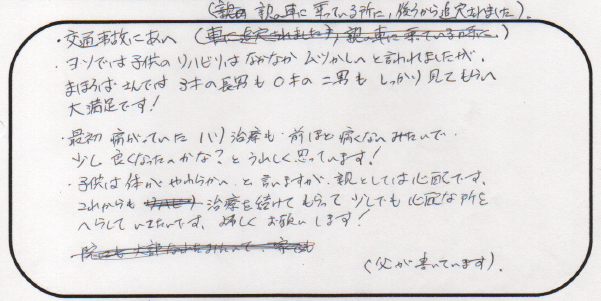 (親の車に乗っている所に、後ろから追突されました)。
・交通事故にあい (車に追突されました、親の車に乗っている時に。)
・ヨソでは子供のリハビリはなかなかムツかしいと言われましたが、
まほろばさんです 3才の長男も 0才の二男も しっかり見てもらい
大満足です!
・最初 痛がっていた ハリ治療も 前ほど痛くないみたいで
少し良くなったのかな?とうれしく思っています!
・子供は体がやわらかいと言いますが、親としては心配です。
これからも 治療を続けてもらって 少しでも心配な所を
へらしていきたいです、宜しくお願いします!
(父が書いています)。